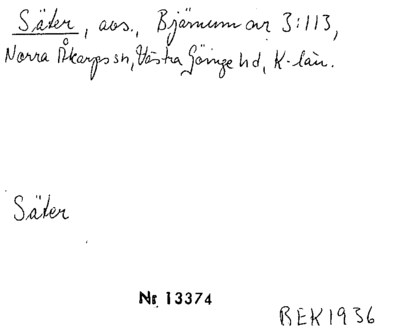 Säter, avs., Bjärnum nr 3:113,
Norra Åkarps sn, Västra Göinge hd, K-län.
Säter
Nr 13374
BEK 1936